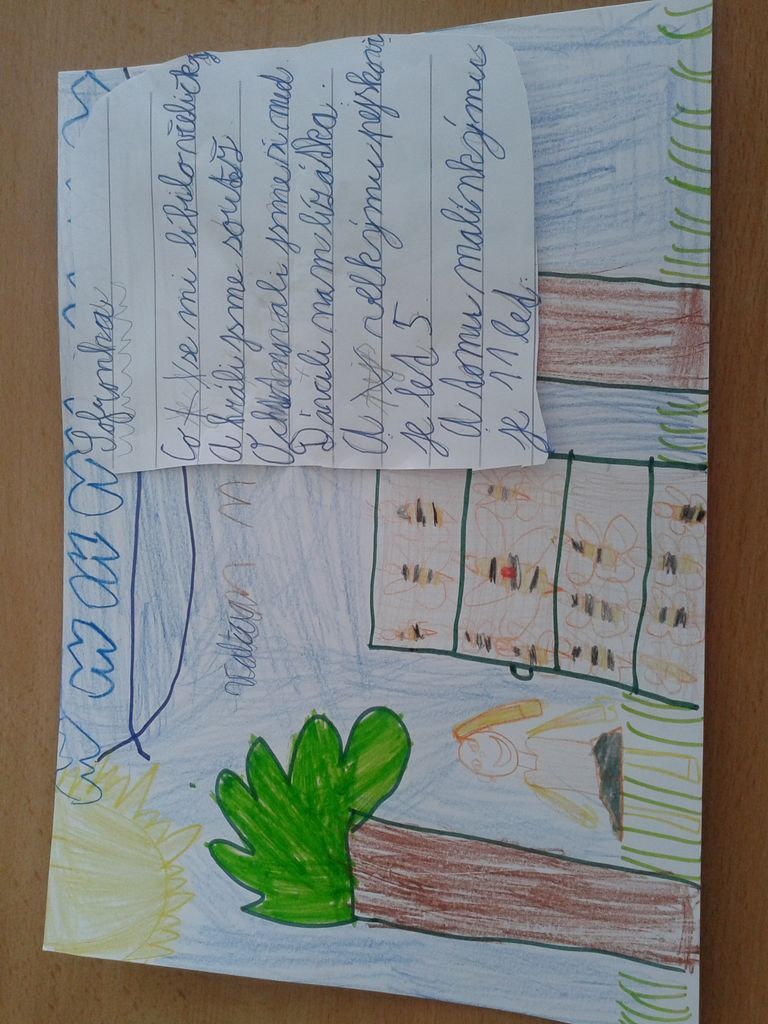 Sofronka
Co se mi líbilo včeličky
A hráli jsme soutěž
A chodunali jsme i med.
Dávali nám lízátka.
A velkýmu pejskovi
je let 5.
A tomu malinkýmus
je 11 let.